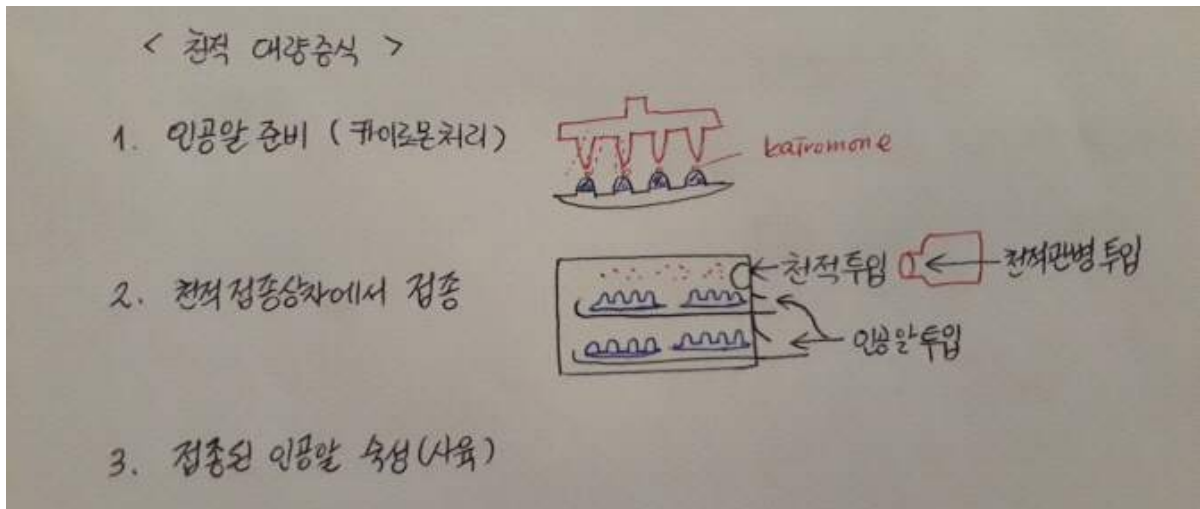 < 천적 대량증식 >
1. 인공알 준비 (카이로몬처리)
kairomone
2. 천적접종상자에서 접종
천적투입
천적관병투입
인공알투입
3. 접종된 인공알 숙성(사육)